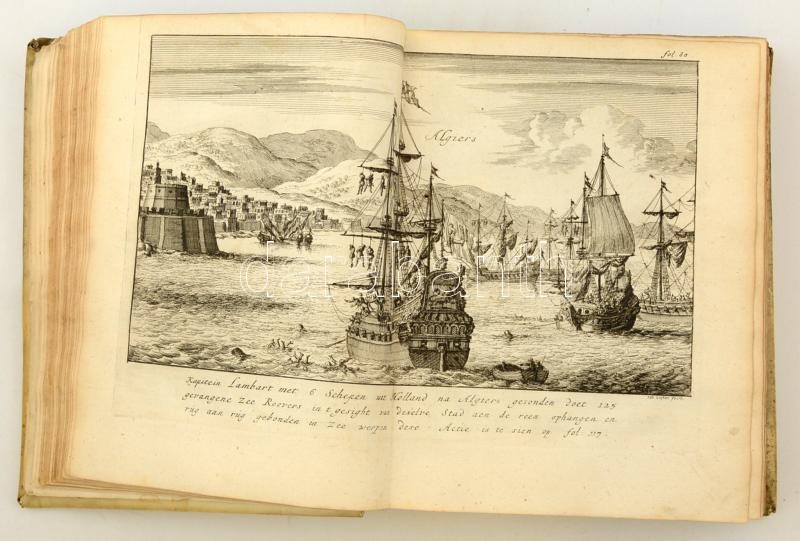 fol. 80
Algiers
darabanth
Kapitein Lambart met 6 Schepen uit Holland na Algiers gesonden doet 125
gevangene Zee Roovers in 't gesight van deselve Stad aen de reen ophangen en
rug aan rug gebonden in Zee werpen dese Actie is te sien op fol: 117: